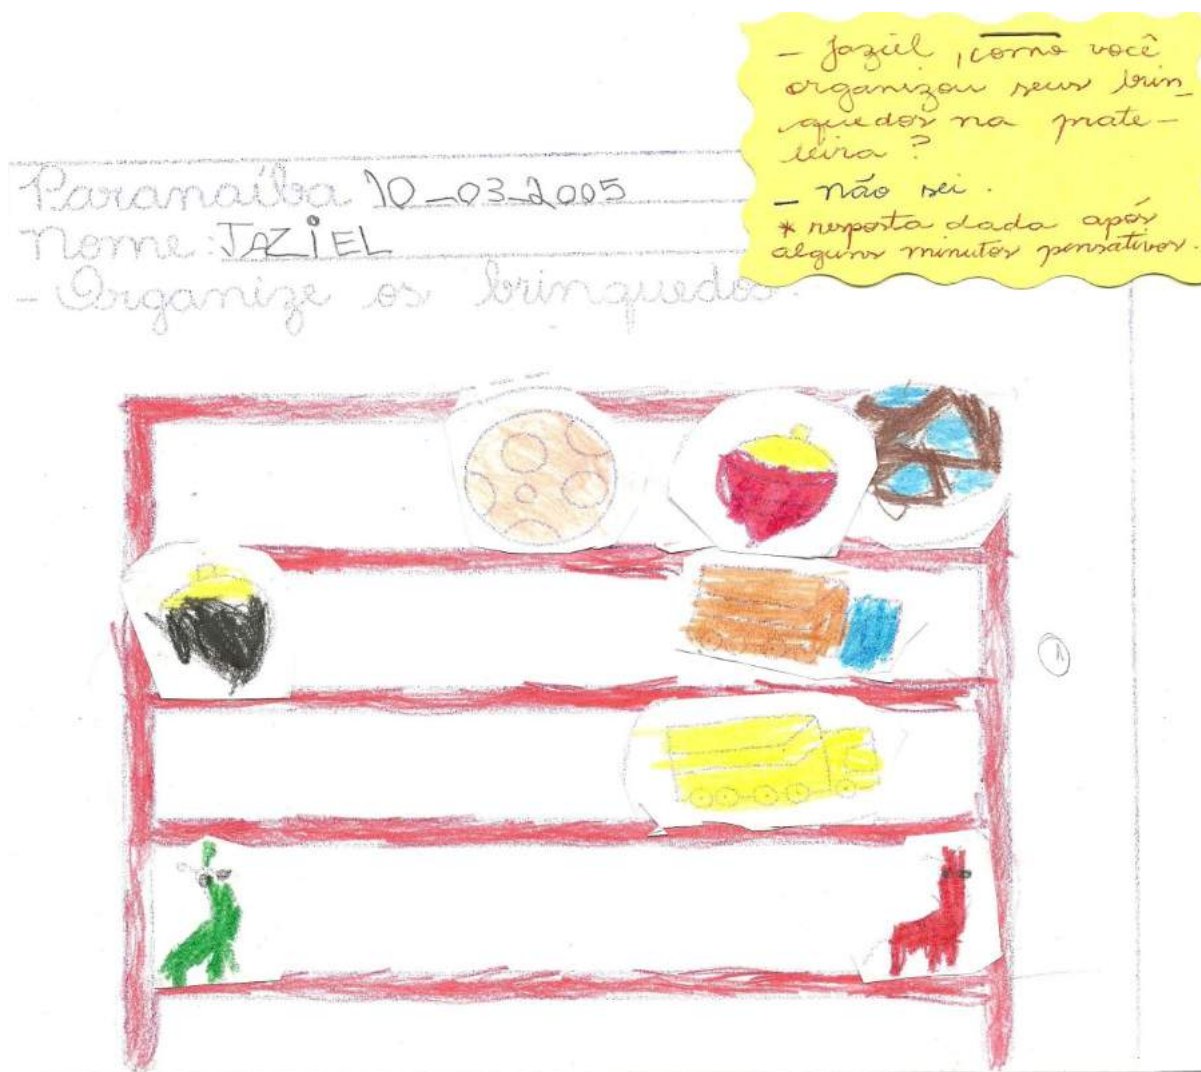 - Jaziel, como você
organizou seus brin_
quedos na prate-
leira?
_ não sei.
* resposta dada após
alguns minutos pensativos.
Paranaíba 10_03_2005
Nome: JAZiEL
- Organize os brinquedos.